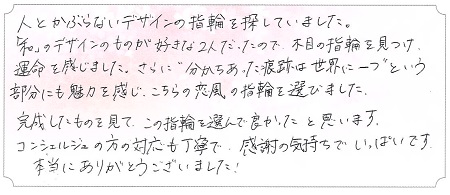 人とかぶらないデザインの指輪を探していました。
「和」のデザインのものが好きな2人だったので、木目の指輪を見つけ、
運命を感じました。さらに"分かちあった痕跡は世界に一つ"という
部分にも魅力を感じ、こちらの恋風の指輪を選びました。
完成したものを見て、この指輪を選んで良かったと思います。
コンシェルジュの方の対応も丁寧で、感謝の気持ちでいっぱいです。
本当にありがとうございました!